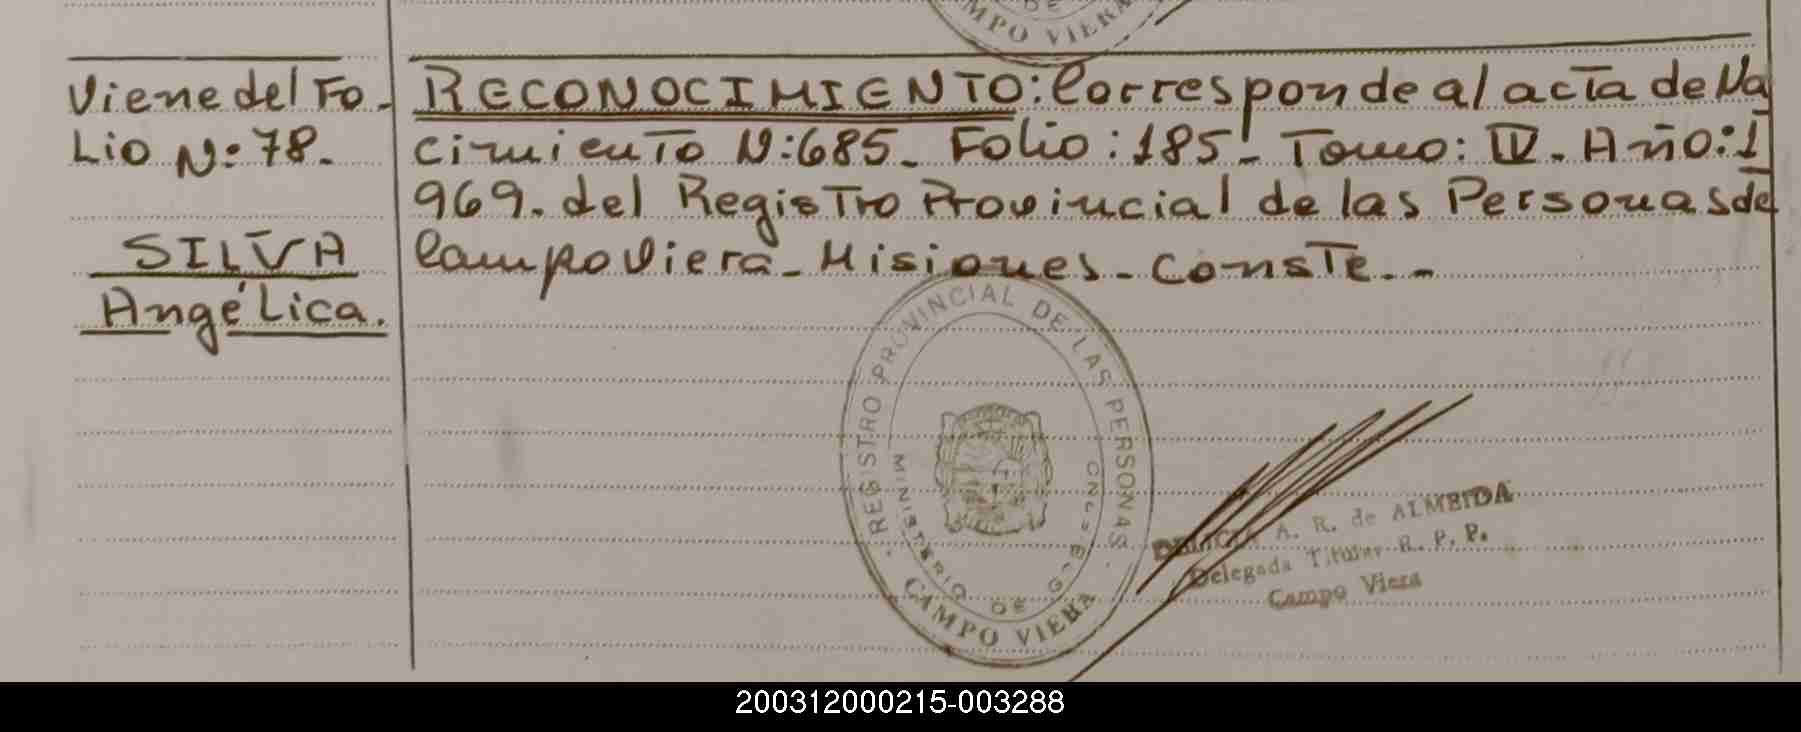 MPO VIERA
Viene del Fo-
Lio N: 78.
SILVA
Angélica.
RECONOCIMIENTO: Corresponde al acta de Na
cimiento N: 685. Folio: 185. Tomo: IV. Año: 1
969. del Registro Provincial de las Personas de
Campo Viera - Misiones - Conste. -
REGISTRO PROVINCIAL DE LAS PERSONAS
MINISTERIO DE
CAMPO VIERA
A. R. de ALMEIDA
Delegada Titular R. P. P.
Campo Viera
200312000215-003288